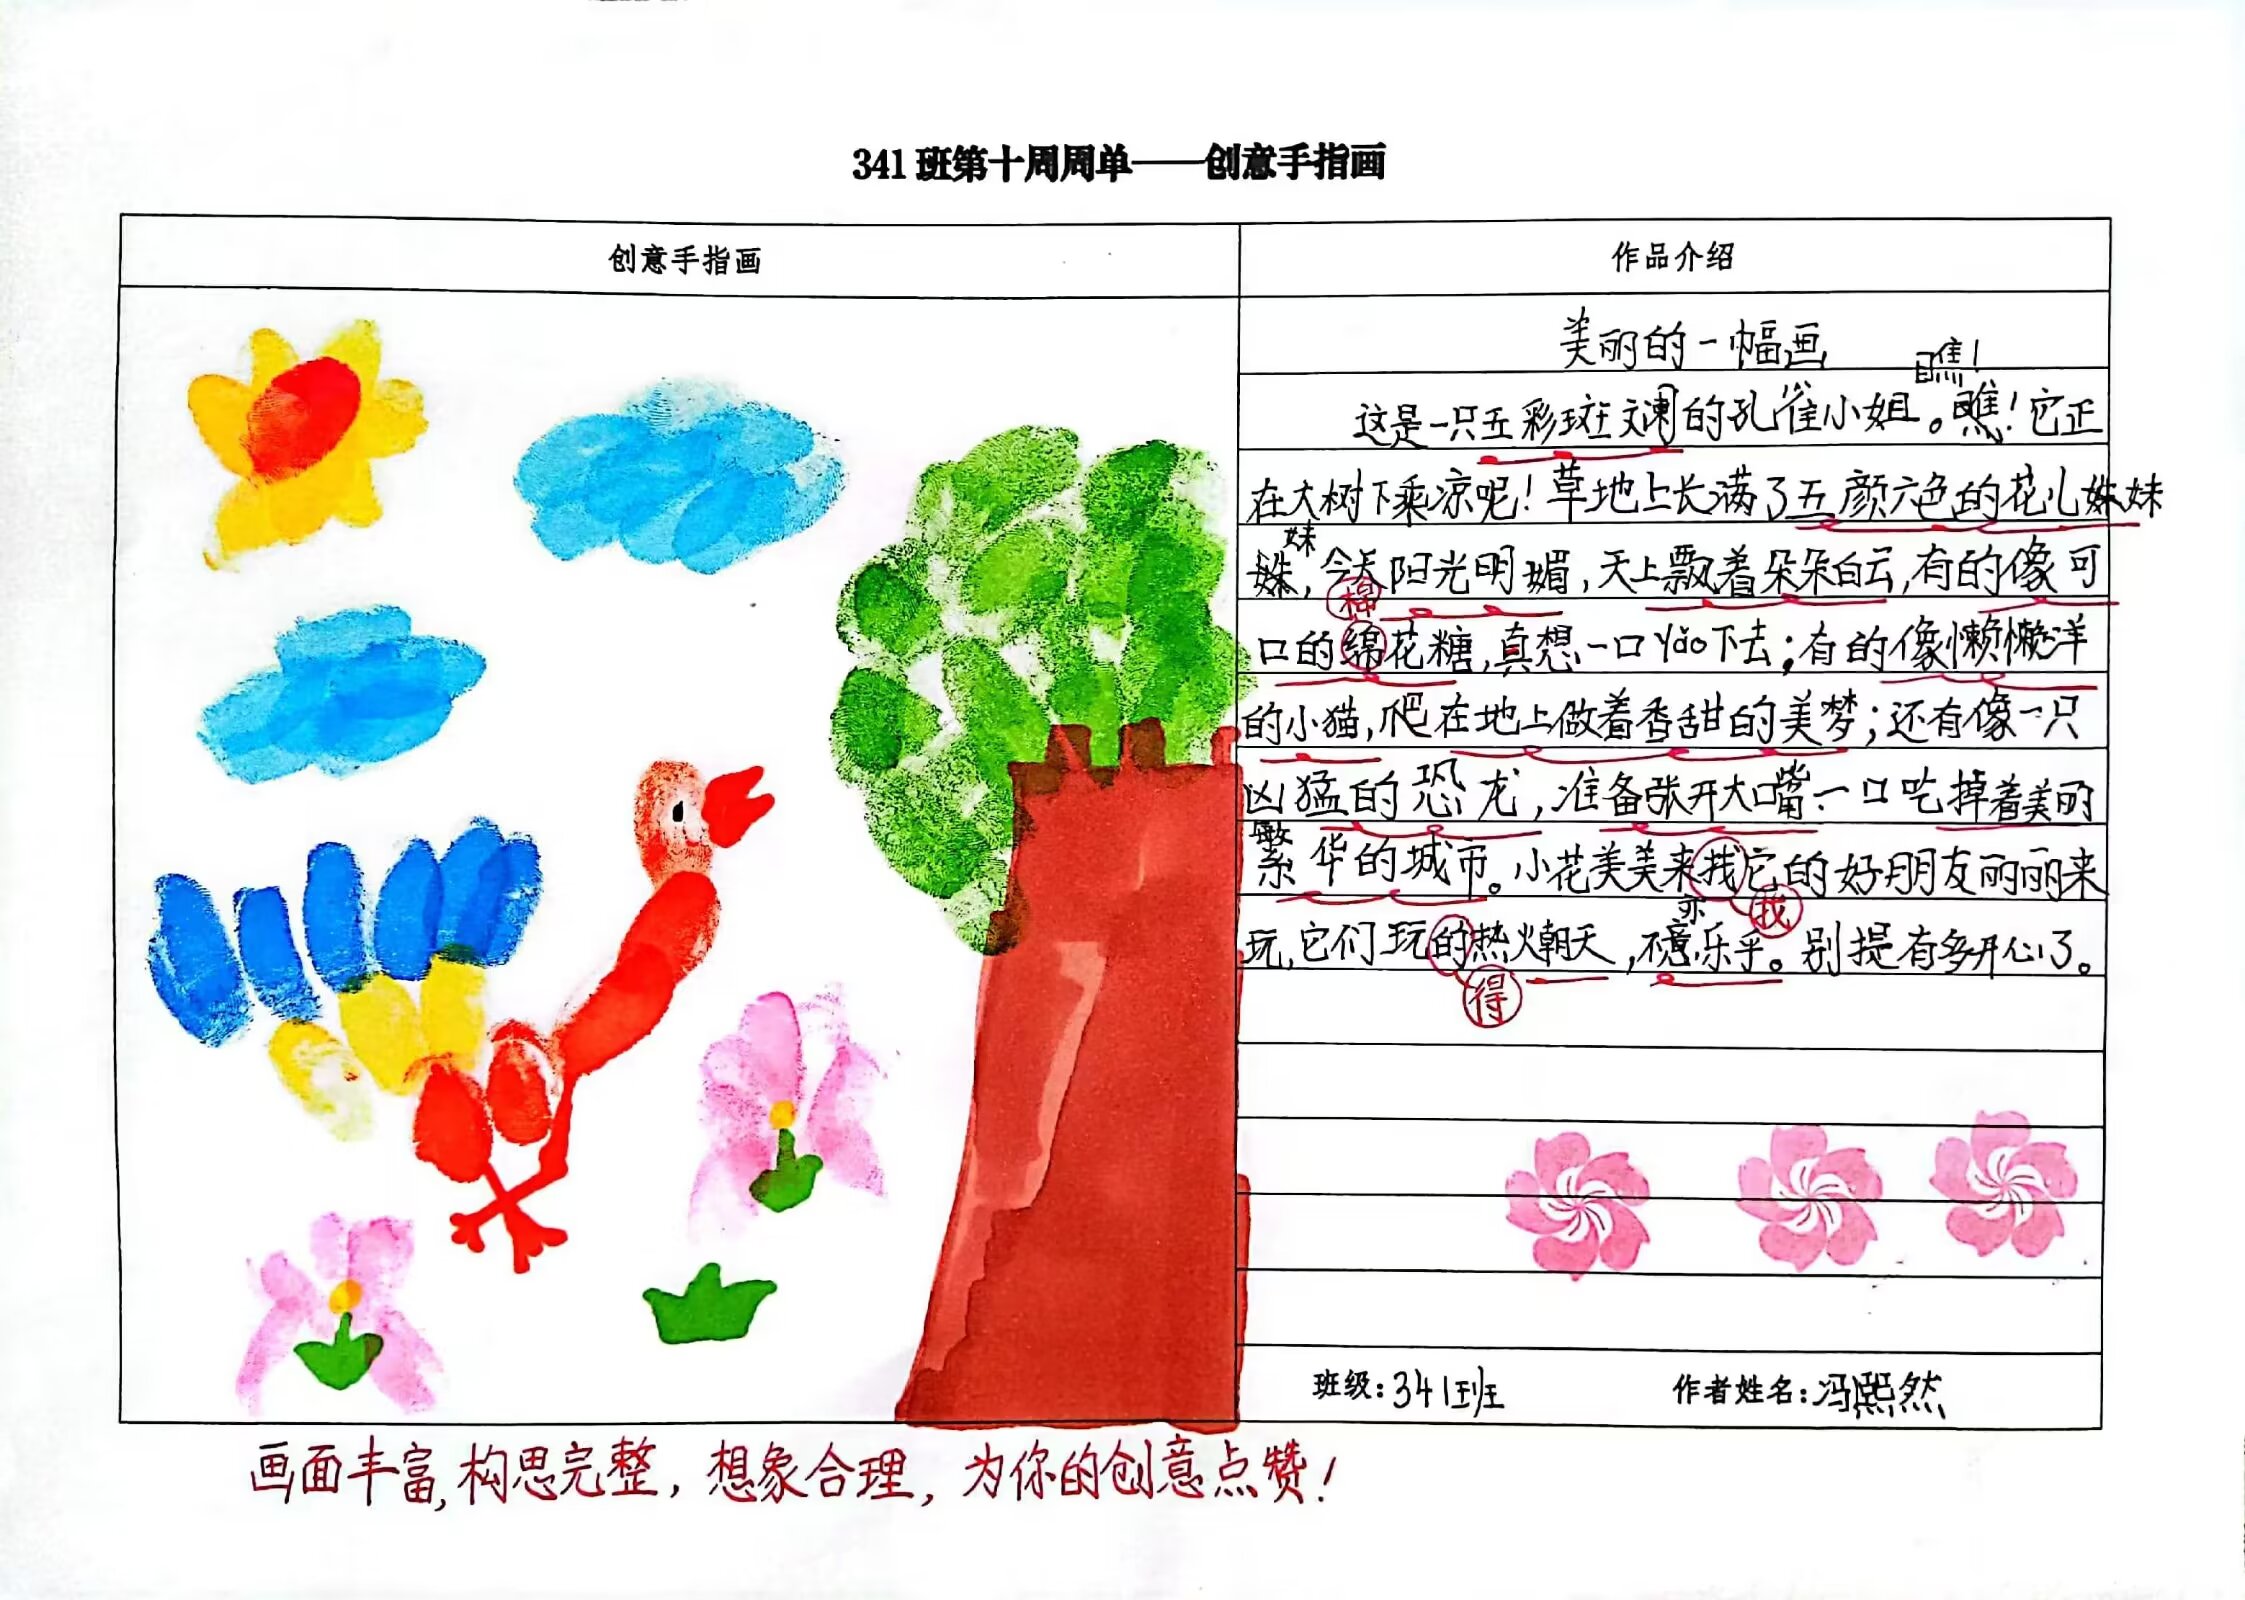 341班第十周周单——创意手指画
创意手指画
作品介绍
美丽的一幅画
瞧！
这是一只五彩斑斓的孔雀小姐。瞧！它正
在大树下乘凉呢！草地上长满了五颜六色的花儿姝妹
妹
姝，今天阳光明媚，天上飘着朵朵白云，有的像可
棉
口的绵花糖，真想一口yǎo下去；有的像懒懒洋
的小猫，爬在地上做着香甜的美梦；还有像一只
凶猛的恐龙，准备张开大口嘴一口吃掉着美丽
繁华的城市。小花美美来找它的好朋友丽丽来
亦 找
玩，它们玩的热火朝天，不意乐乎。别提有多开心了。
得
班级：341班
作者姓名：冯熙然
画面丰富，构思完整，想象合理，为你的创意点赞！